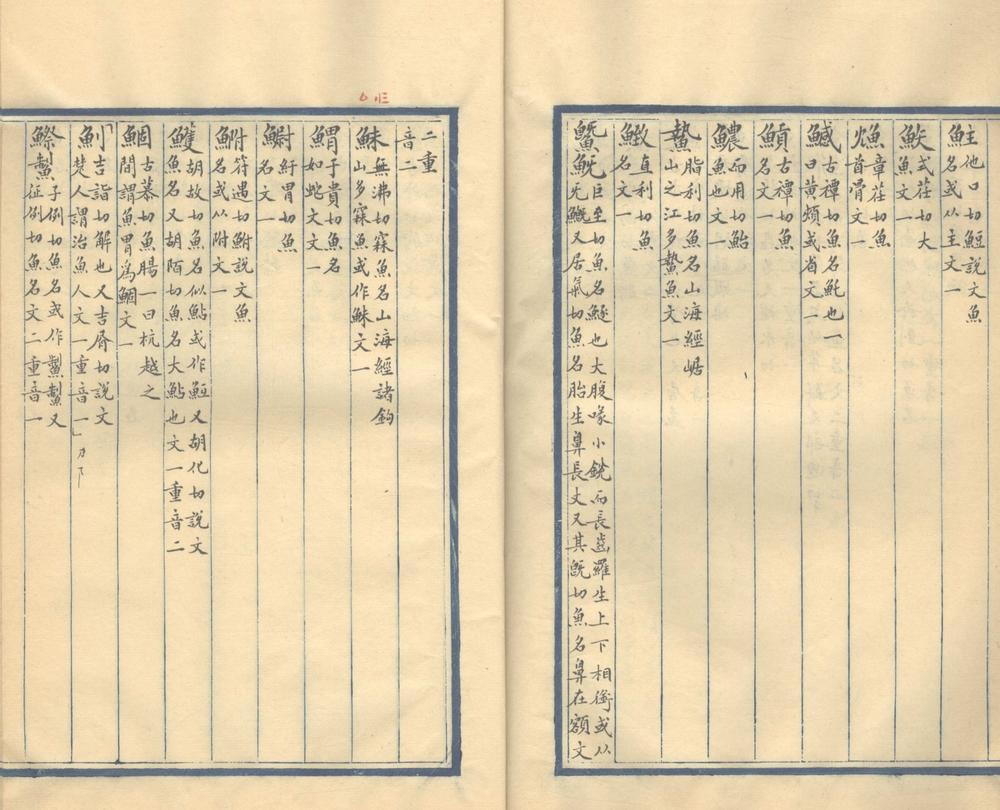 鮏他口切䱏說文魚
名或从主文一
䱀式荏切大
魚文一
𤉯章荏切魚
首骨文一
鱤古禫切魚名魠也一
曰黃頰或省文二
䲁古禫切魚
名文一
鱸而用切鮐
魚也文一
鷙脂利切魚名山海經崌
山之江多鷙魚文一
緻直利切魚
名文一
鱀䲅巨至切魚名鱁也大腹喙小銳而長齒羅生上下相銜或从
旡鱀又居氣切魚名胎生鼻長丈又其旣切魚名鼻在額文
二重
音二
鮇無沸切寐魚名山海經諸鉤
山多寐魚或作鮇文一
䱵于貴切魚名
如蛇文文一
䲁紆胃切魚
名文一
鮒符遇切鮒說文魚
名或从附文一
鱯胡故切魚名似鮎或作䱏又胡化切說文
魚名又胡陌切魚名大鮎也文一重音二
鯝古慕切魚腸一曰杭越之
間謂魚胃爲鯝文一
魝吉詣切解也又吉屑切說文
楚人謂治魚人文一重音一
刀下
鰶䱥子例切魚名或作䱥䱥又
征例切魚名文二重音一